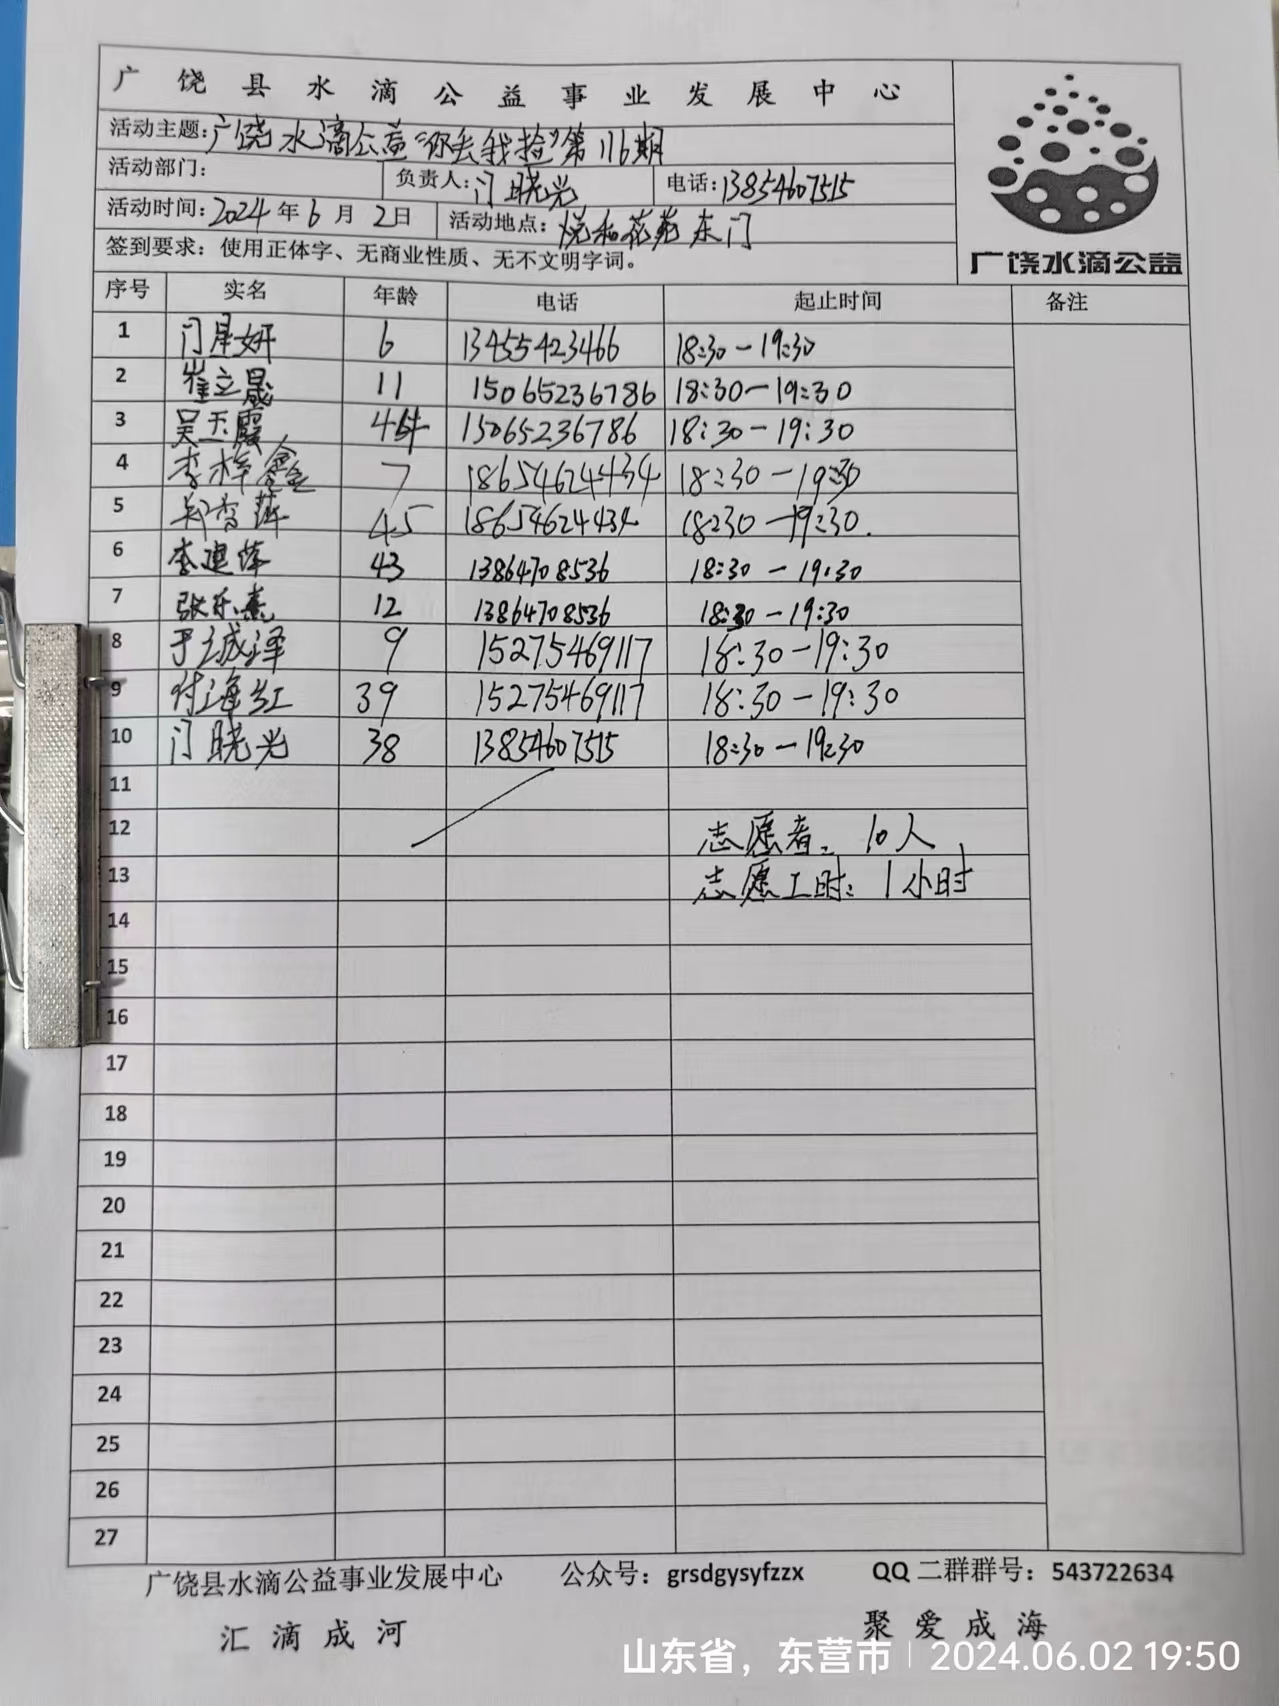 广饶县水滴公益事业发展中心
活动主题：广饶水滴公益“你丢我捡”第116期
活动部门： 负责人：门晓光 电话：13854607515
活动时间：2024年6月2日 活动地点：悦和花苑东门
签到要求：使用正体字、无商业性质、无不文明字词。
广饶水滴公益
序号 实名 年龄 电话 起止时间 备注
1 门星妍 6 13455423466 18:30-19:30
2 崔立晟 11 15065236786 18:30-19:30
3 吴玉霞 15065236786 18:30-19:30
4 李梓鑫 7 18654624434 18:30-19:30
5 郑香萍 45 18654624434 18:30-19:30.
6 李建萍 43 13864708536 18:30-19:30
7 张乐熹 12 13864708536 18:30-19:30
8 于诚泽 9 15275469117 18:30-19:30
9 付海红 39 15275469117 18:30-19:30
10 门晓光 38 13854607515 18:30-19:30
11
12 志愿者：10人
13 志愿工时：1小时
14
15
16
17
18
19
20
21
22
23
24
25
26
27
广饶县水滴公益事业发展中心 公众号：grsdgysyfzzx QQ二群群号：543722634
汇滴成河 聚爱成海
山东省，东营市 | 2024.06.02 19:50